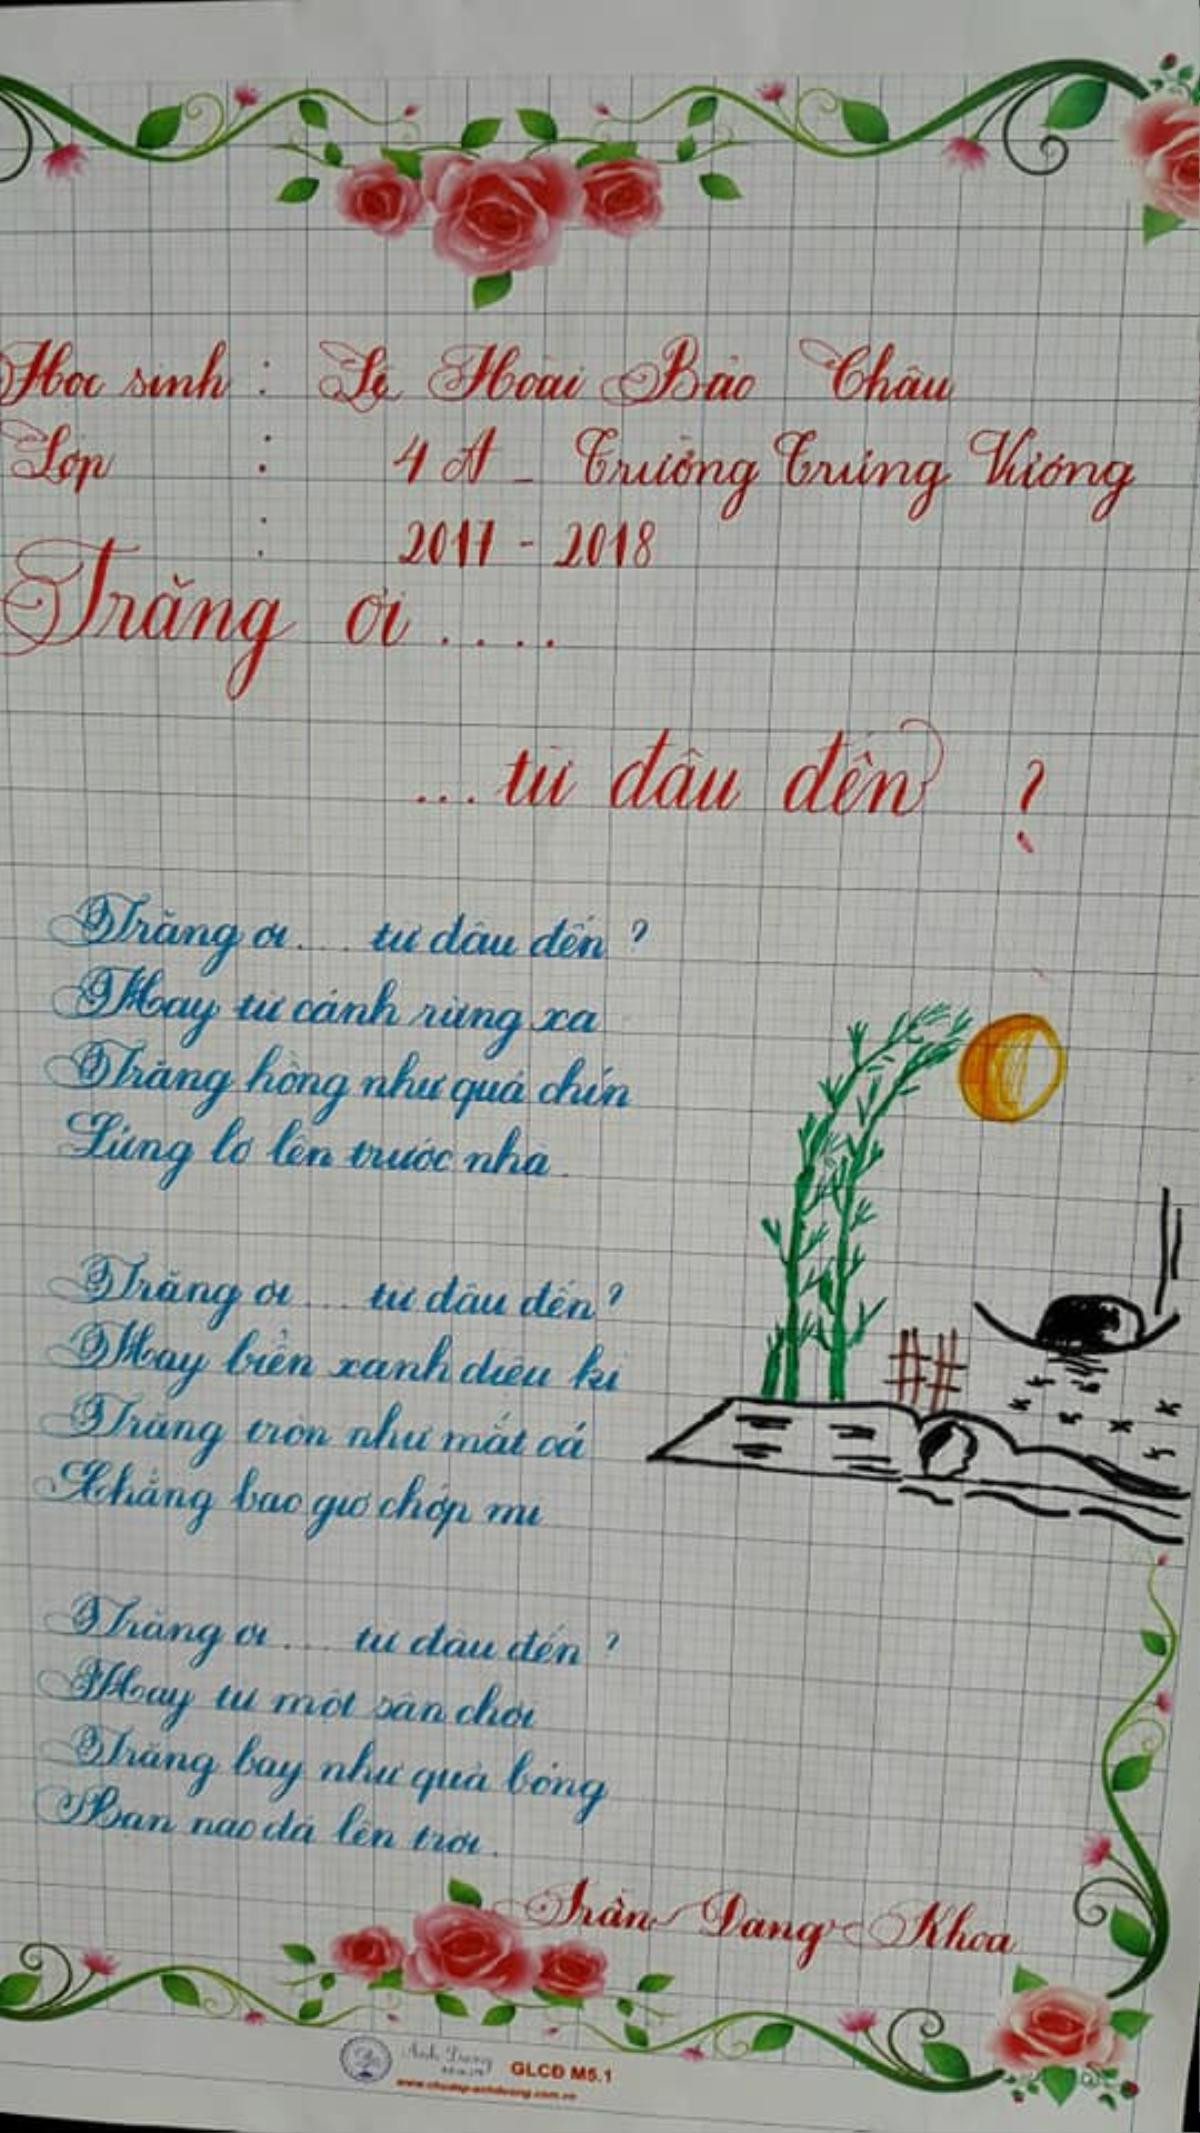 Học sinh : Lê Hoài Bảo Châu
Lớp : 4A - Trường Trưng Vương
: 2017 - 2018
Trăng ơi ....
... từ đâu đến ?
Trăng ơi .... từ đâu đến ?
Hay từ cánh rừng xa
Trăng hồng như quả chín
Lửng lơ lên trước nhà
Trăng ơi .... từ đâu đến ?
Hay biển xanh diệu kì
Trăng tròn như mắt cá
Chẳng bao giờ chớp mi
Trăng ơi .... từ đâu đến ?
Hay từ một sân chơi
Trăng bay như quả bóng
Bạn nào đá lên trời.
Trần Đăng Khoa
Ánh Dương
GLCĐ M5.1
www.chudep-anhduong.com.vn